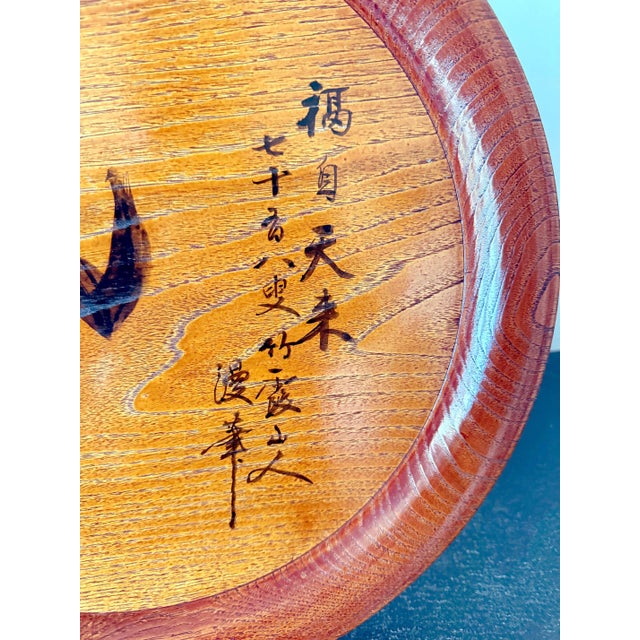 福自天来
七十有八叟竹霞山人
漫筆